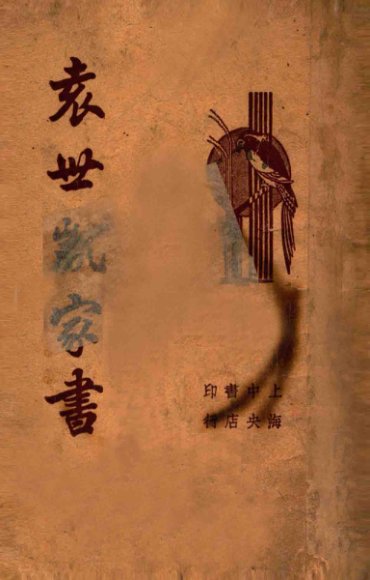 袁世凱家書
上海
中央
書店
印行